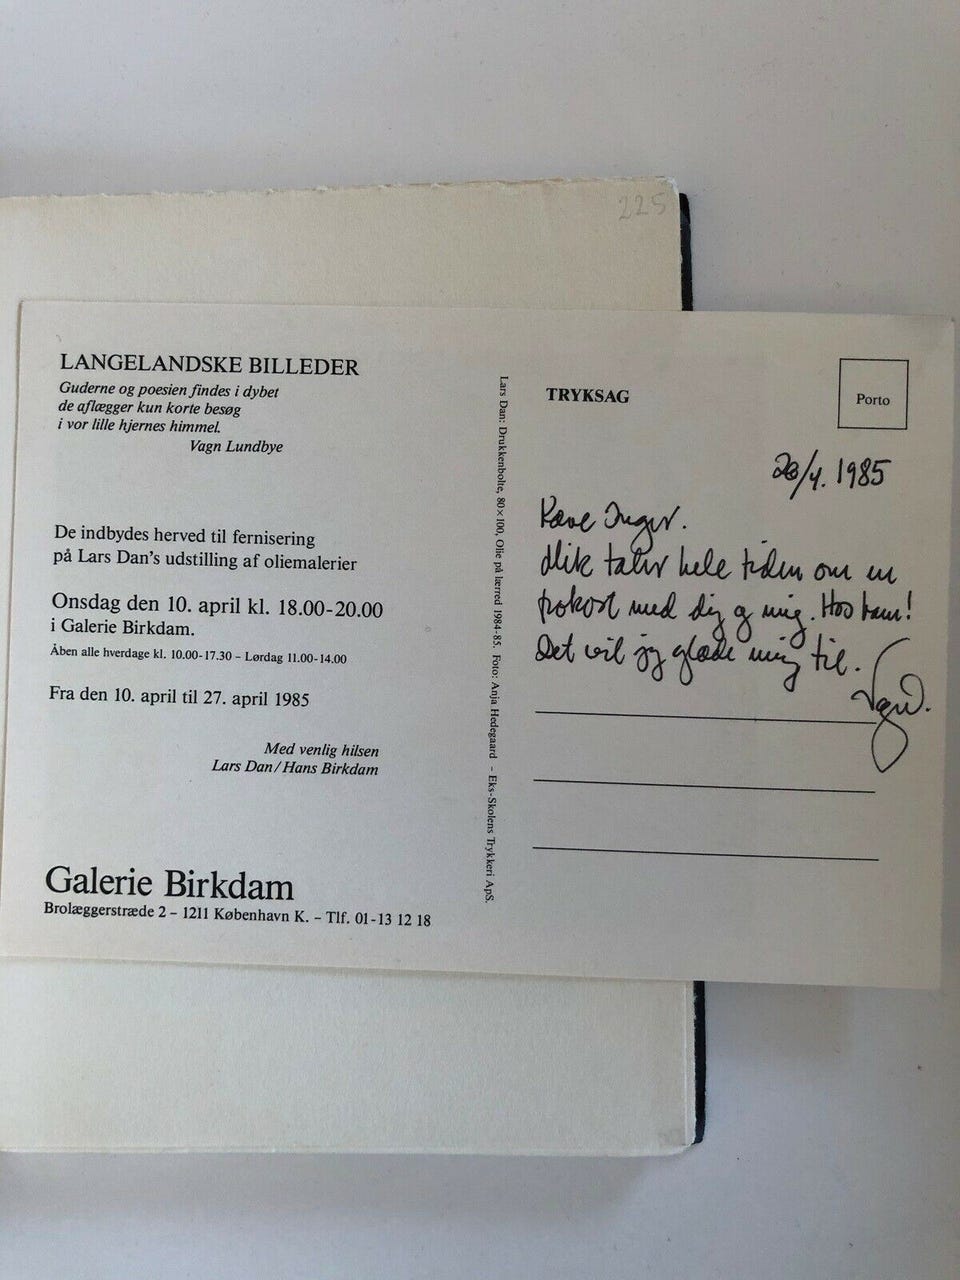 225
LANGELANDSKE BILLEDER
Guderne og poesien findes i dybet
de aflægger kun korte besøg
i vor lille hjernes himmel.
Vagn Lundbye
De indbydes herved til fernisering
på Lars Dan's udstilling af oliemalerier
Onsdag den 10. april kl. 18.00-20.00
i Galerie Birkdam.
Åben alle hverdage kl. 10.00-17.30 – Lørdag 11.00-14.00
Fra den 10. april til 27. april 1985
Med venlig hilsen
Lars Dan/Hans Birkdam
Galerie Birkdam
Brolæggerstræde 2 – 1211 København K. – Tlf. 01-13 12 18
Lars Dan: Drukkenbolte, 80 × 100, Olie på lærred 1984-85. Foto: Anja Hedegaard – Eks-Skolens Trykkeri ApS.
TRYKSAG
Porto
/4. 1985
Kære Inger.
taler hele tiden om en
frokost med dig og mig. Hos ham!
Det vil jeg glæde mig til.